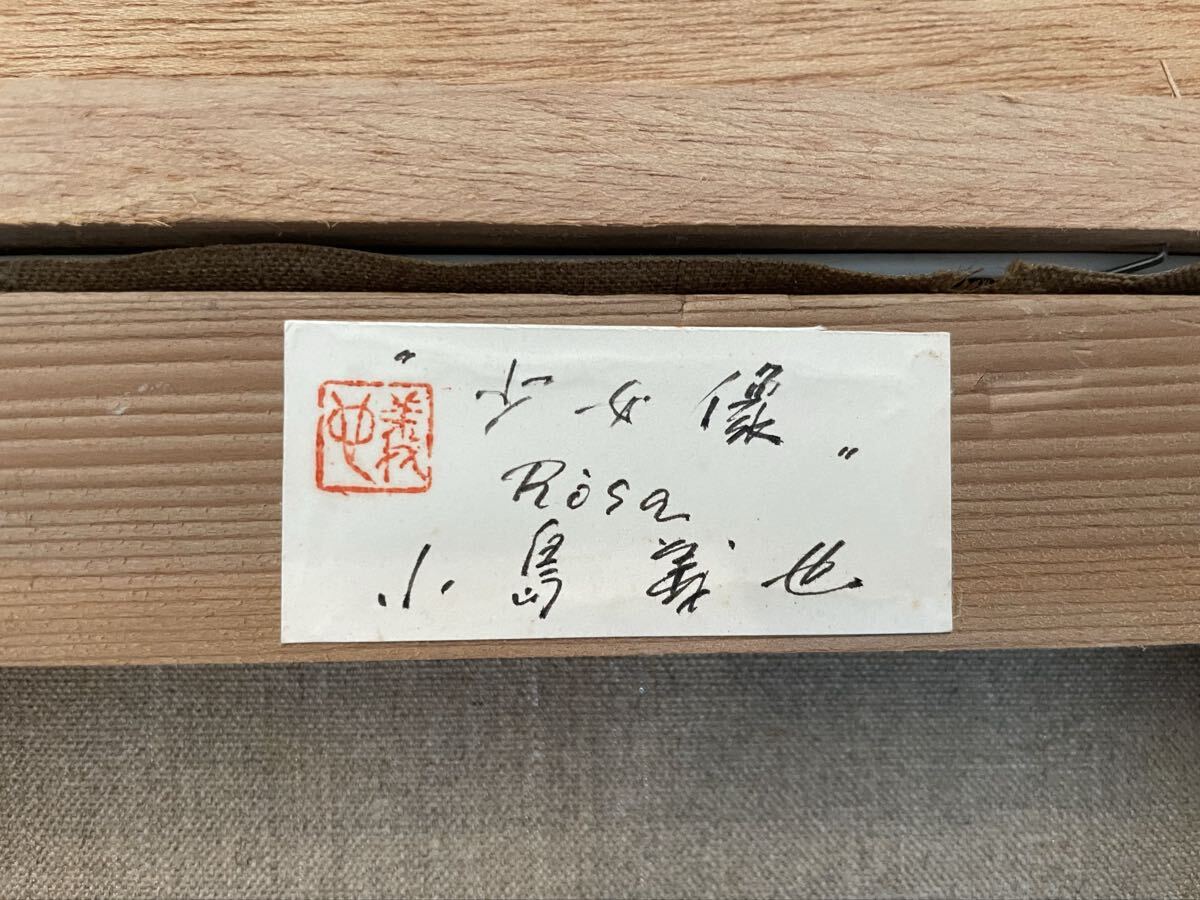 "少女像"
Rosa
小島義也
義也